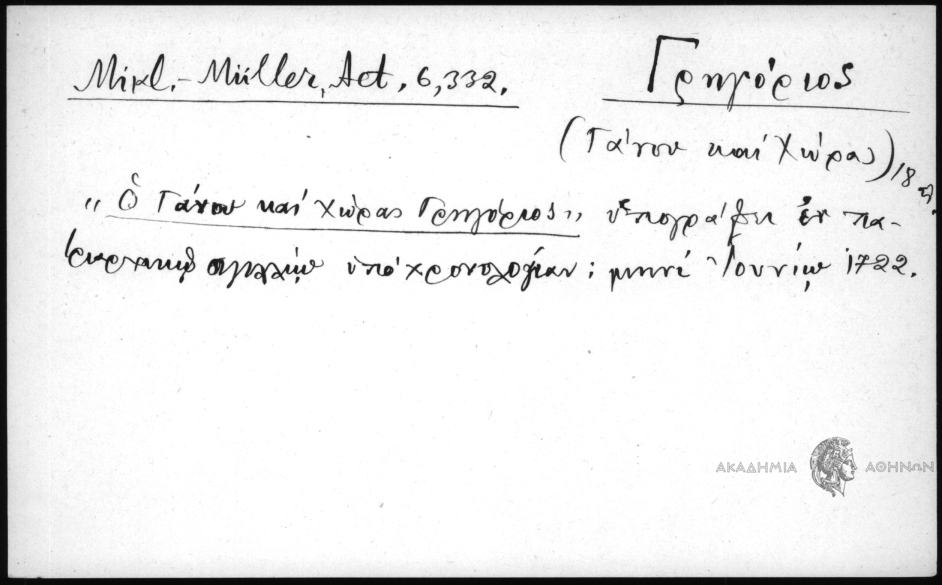 Mikl.-Müller, Act. 6,332.
Γρηγόριος
(Γάνου καί Χώρας) 18
„Ὁ Γάνου καί Χώρας Γρηγόριος„ ὑπογράφει ἐν πα-
τριαρχικῷ σιγιλλίῳ ὑπό χρονολογίαν: μηνί Ἰουνίῳ 1722.
ΑΚΑΔΗΜΙΑ ΑΘΗΝΩΝ